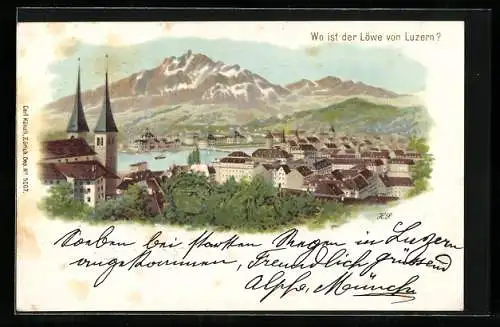 Wo ist der Löwe von Luzern?
Carl Künzli, Zürich, Dep. Nº 5207.
Soeben bei starkem Regen in Luzern
angekommen, Freundlich grüssend
Alphs, München